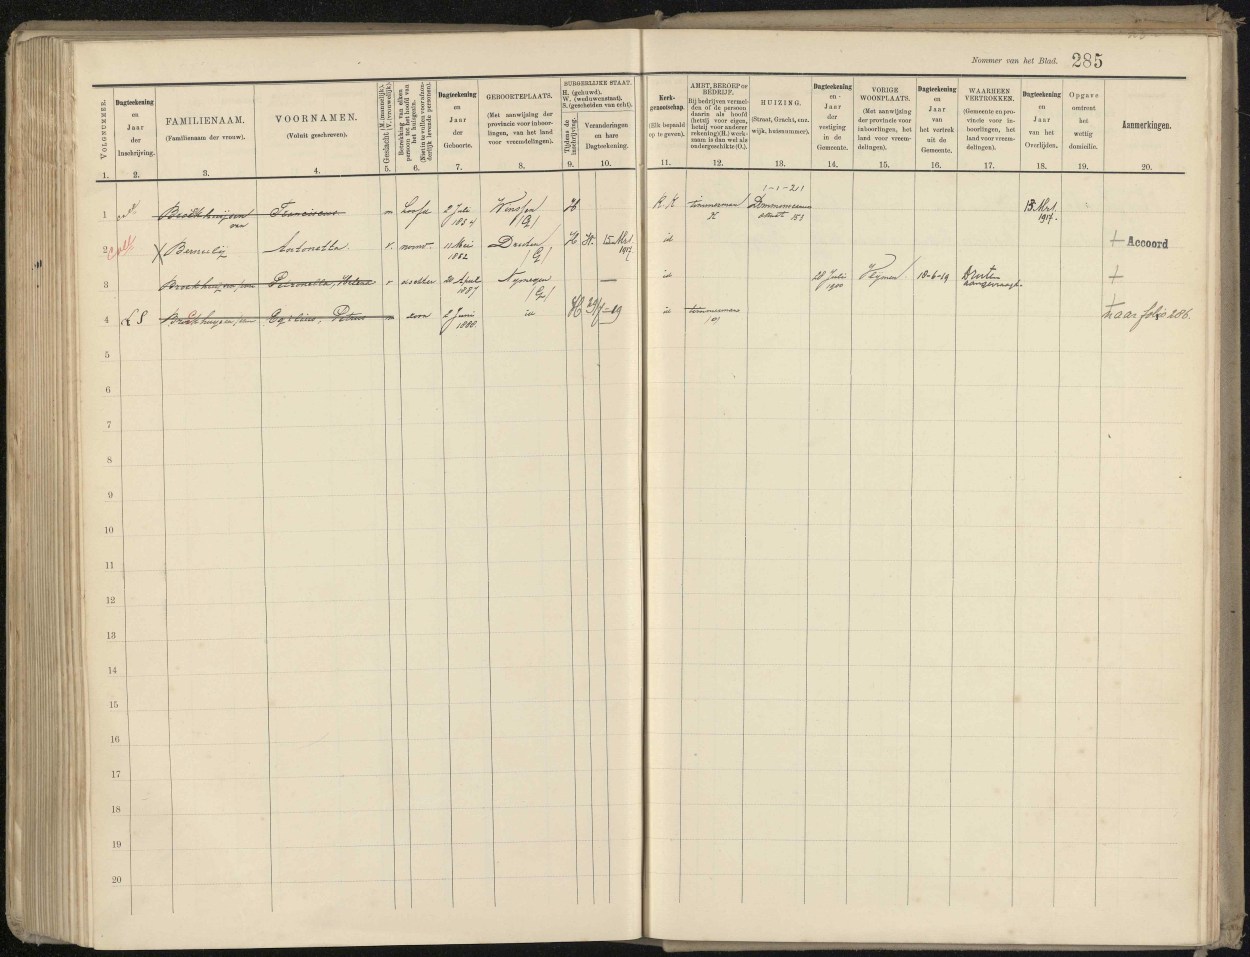 Nommer van het Blad. 285
VOLGNUMMER.
Dagteekening
en
Jaar
der
Inschrijving.
FAMILIENAAM.
(Familienaam der vrouw).
VOORNAMEN.
(Voluit geschreven).
Geslacht. (M. (mannelijk). V. (vrouwelijk).
Betrekking van elken
persoon tot het hoofd van
het huisgezin.
Dagteekening
en
Jaar
der
Geboorte.
GEBOORTEPLAATS.
(Met aanwijzing der
provincie voor inboor-
lingen, van het land
voor vreemdelingen).
BURGERLIJKE STAAT.
H. (gehuwd).
W. (weduwenstaat).
S. (gescheiden van echt).
Tijdens de
inschrijving.
Veranderingen
en hare
Dagteekening.
Kerk-
genootschap.
(Elk bepaald
op te geven).
AMBT, BEROEP of
BEDRIJF.
Bij bedrijven vermel-
den of de persoon
daarin als hoofd
(hetzij voor eigen,
hetzij voor anderer
rekening) (H.) werk-
zaam is dan wel als
ondergeschikte (O.).
HUIZING.
(Straat, Gracht, enz.
wijk, huisnummer).
Dagteekening
en
Jaar
der
vestiging
in de
Gemeente.
VORIGE
WOONPLAATS.
(Met aanwijzing
der provincie voor
inboorlingen, het
land voor vreem-
delingen).
Dagteekening
en
Jaar
van
het vertrek
uit de
Gemeente.
WAARHEEN
VERTROKKEN.
(Gemeente en pro-
vincie voor in-
boorlingen, het
land voor vreem-
delingen).
Dagteekening
en
Jaar
van het
Overlijden.
Opgave
omtrent
het
wettig
domicilie.
Aanmerkingen.
1. 2. 3. 4. 5. 6. 7. 8. 9. 10. 11. 12. 13. 14. 15. 16. 17. 18. 19. 20.
1-1-21
1 Franciscus m hoofd 2 Juli Winssen H R.K timmerman 13 Mrt
1854 (G) H straat 153 1917.
2 Antonetta v. 11 Mei Druten H W. 15 Mrt id + Accoord
1862 (G) 1917
3 v dochter 20 April Nijmegen — id 28 Juli 18-6-19 Druten +
1887 (G) 1900 aangevraagd.
4 LS Petrus m zoon 2 Juni id H id timmerman naar folio 286.
1888. (O)
5
6
7
8
9
10
11
12
13
14
15
16
17
18
19
20